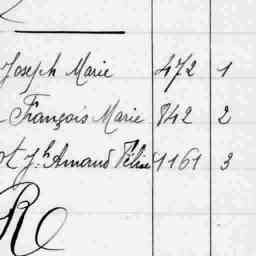 Joseph Marie 472 1
François Marie 842 2
t J.h Amand Félix 1161 3
R